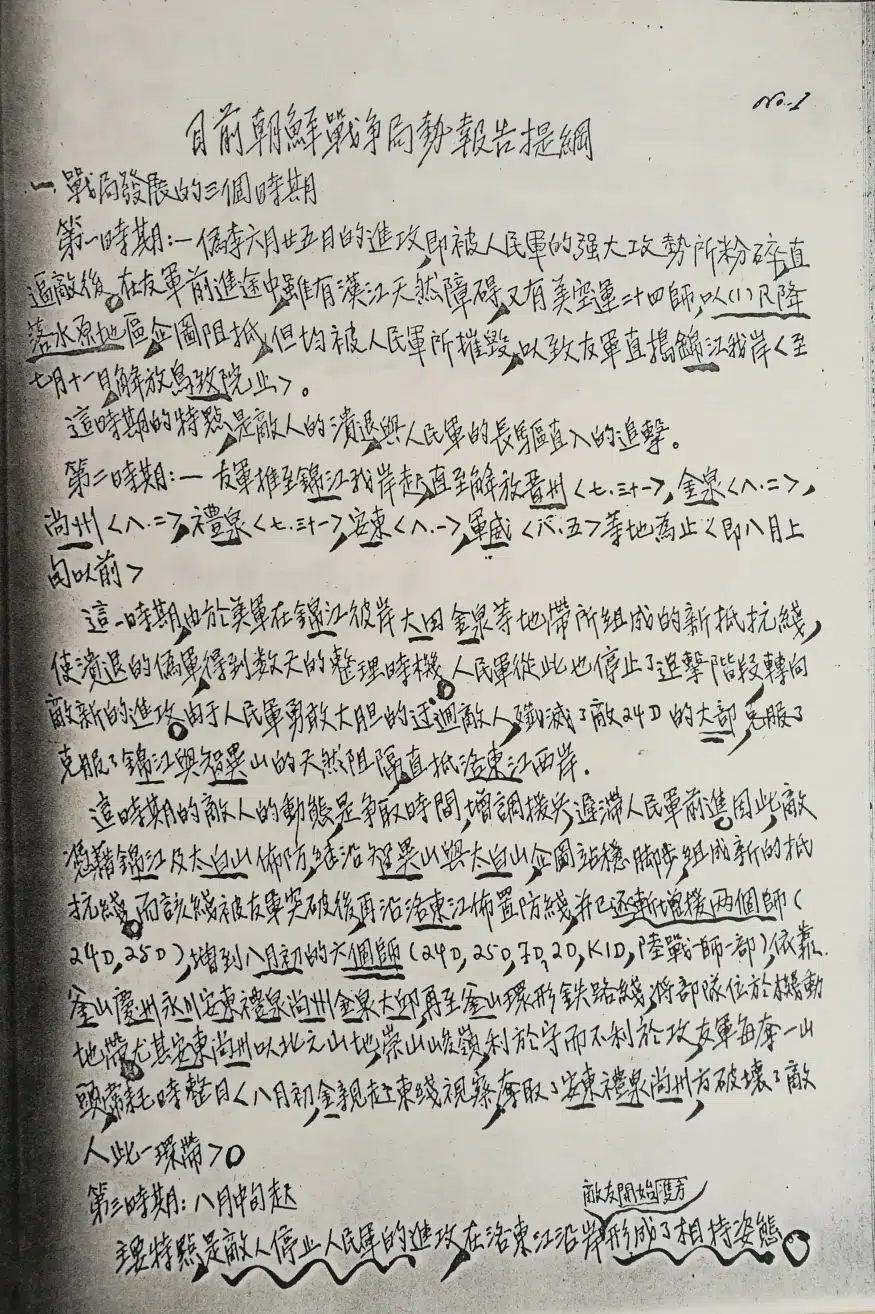 No-1
目前朝鮮戰争局勢報告提綱
一、戰局發展的三個時期
第一時期:一僞李六月廿五日的進攻,即被人民軍的强大攻勢所粉碎,直
逼敵後。在友軍前進途中雖有漢江天然障碍,又有美空運二十四師,以(1)R降
落水原地區,企圖阻抵,但均被人民軍所摧毁,以致友軍直搗錦江我岸<至
七月十一日解放鳥致院止>。
這時期的特點,是敵人的潰退與人民軍的長驅直入的追擊。
第二時期:一友軍推至錦江我岸起,直至解放晋州<七.三十一>,金泉<八.二>,
尚州<八.二>,禮泉<七.三十一>,安東<八.一>,軍威<八.五>等地為止<即八月上
旬以前>
這一時期,由於美軍在錦江彼岸大田金泉等地帶所組成的新抵抗綫,
使潰退的僞軍得到数天的整理時機。人民軍從此也停止了追擊階段,轉向
敵新的進攻。由于人民軍勇敢大胆的迂迴敵人,殲滅了敵24D的大部,克服了
克服了錦江與智異山的天然阻隔,直抵洛東江西岸.
這時期的敵人的動態是争取時間,增調援兵,遲滯人民軍前進。因此,敵
憑藉錦江及太白山佈防,繼沿智異山與太白山企圖站穩脚步,組成新的抵
抗綫。而該綫被友軍突破後,再沿洛東江佈置防綫,并已逐漸增援两個師(
24D,25D),增到八月初的六個師(24D,25D,7D,2D,K1D,陸戰一師一部),依靠
釜山慶州永川安東禮泉尚州金泉大邱再至釜山環形鉄路綫,將部隊位於機動
地帶。尤其安東尚州以北之山地,崇山峻嶺,利於守而不利於攻,友軍每奪一山
頭,常耗時整日<八月初,金親赴東綫視察,奪取了安東禮泉尚州,方破壞了敵
人此一環帶>。
第三時期:八月中旬起
敵友開始雙方
主要特點,是敵人停止人民軍的進攻,在洛東江沿岸形成了相持姿態。